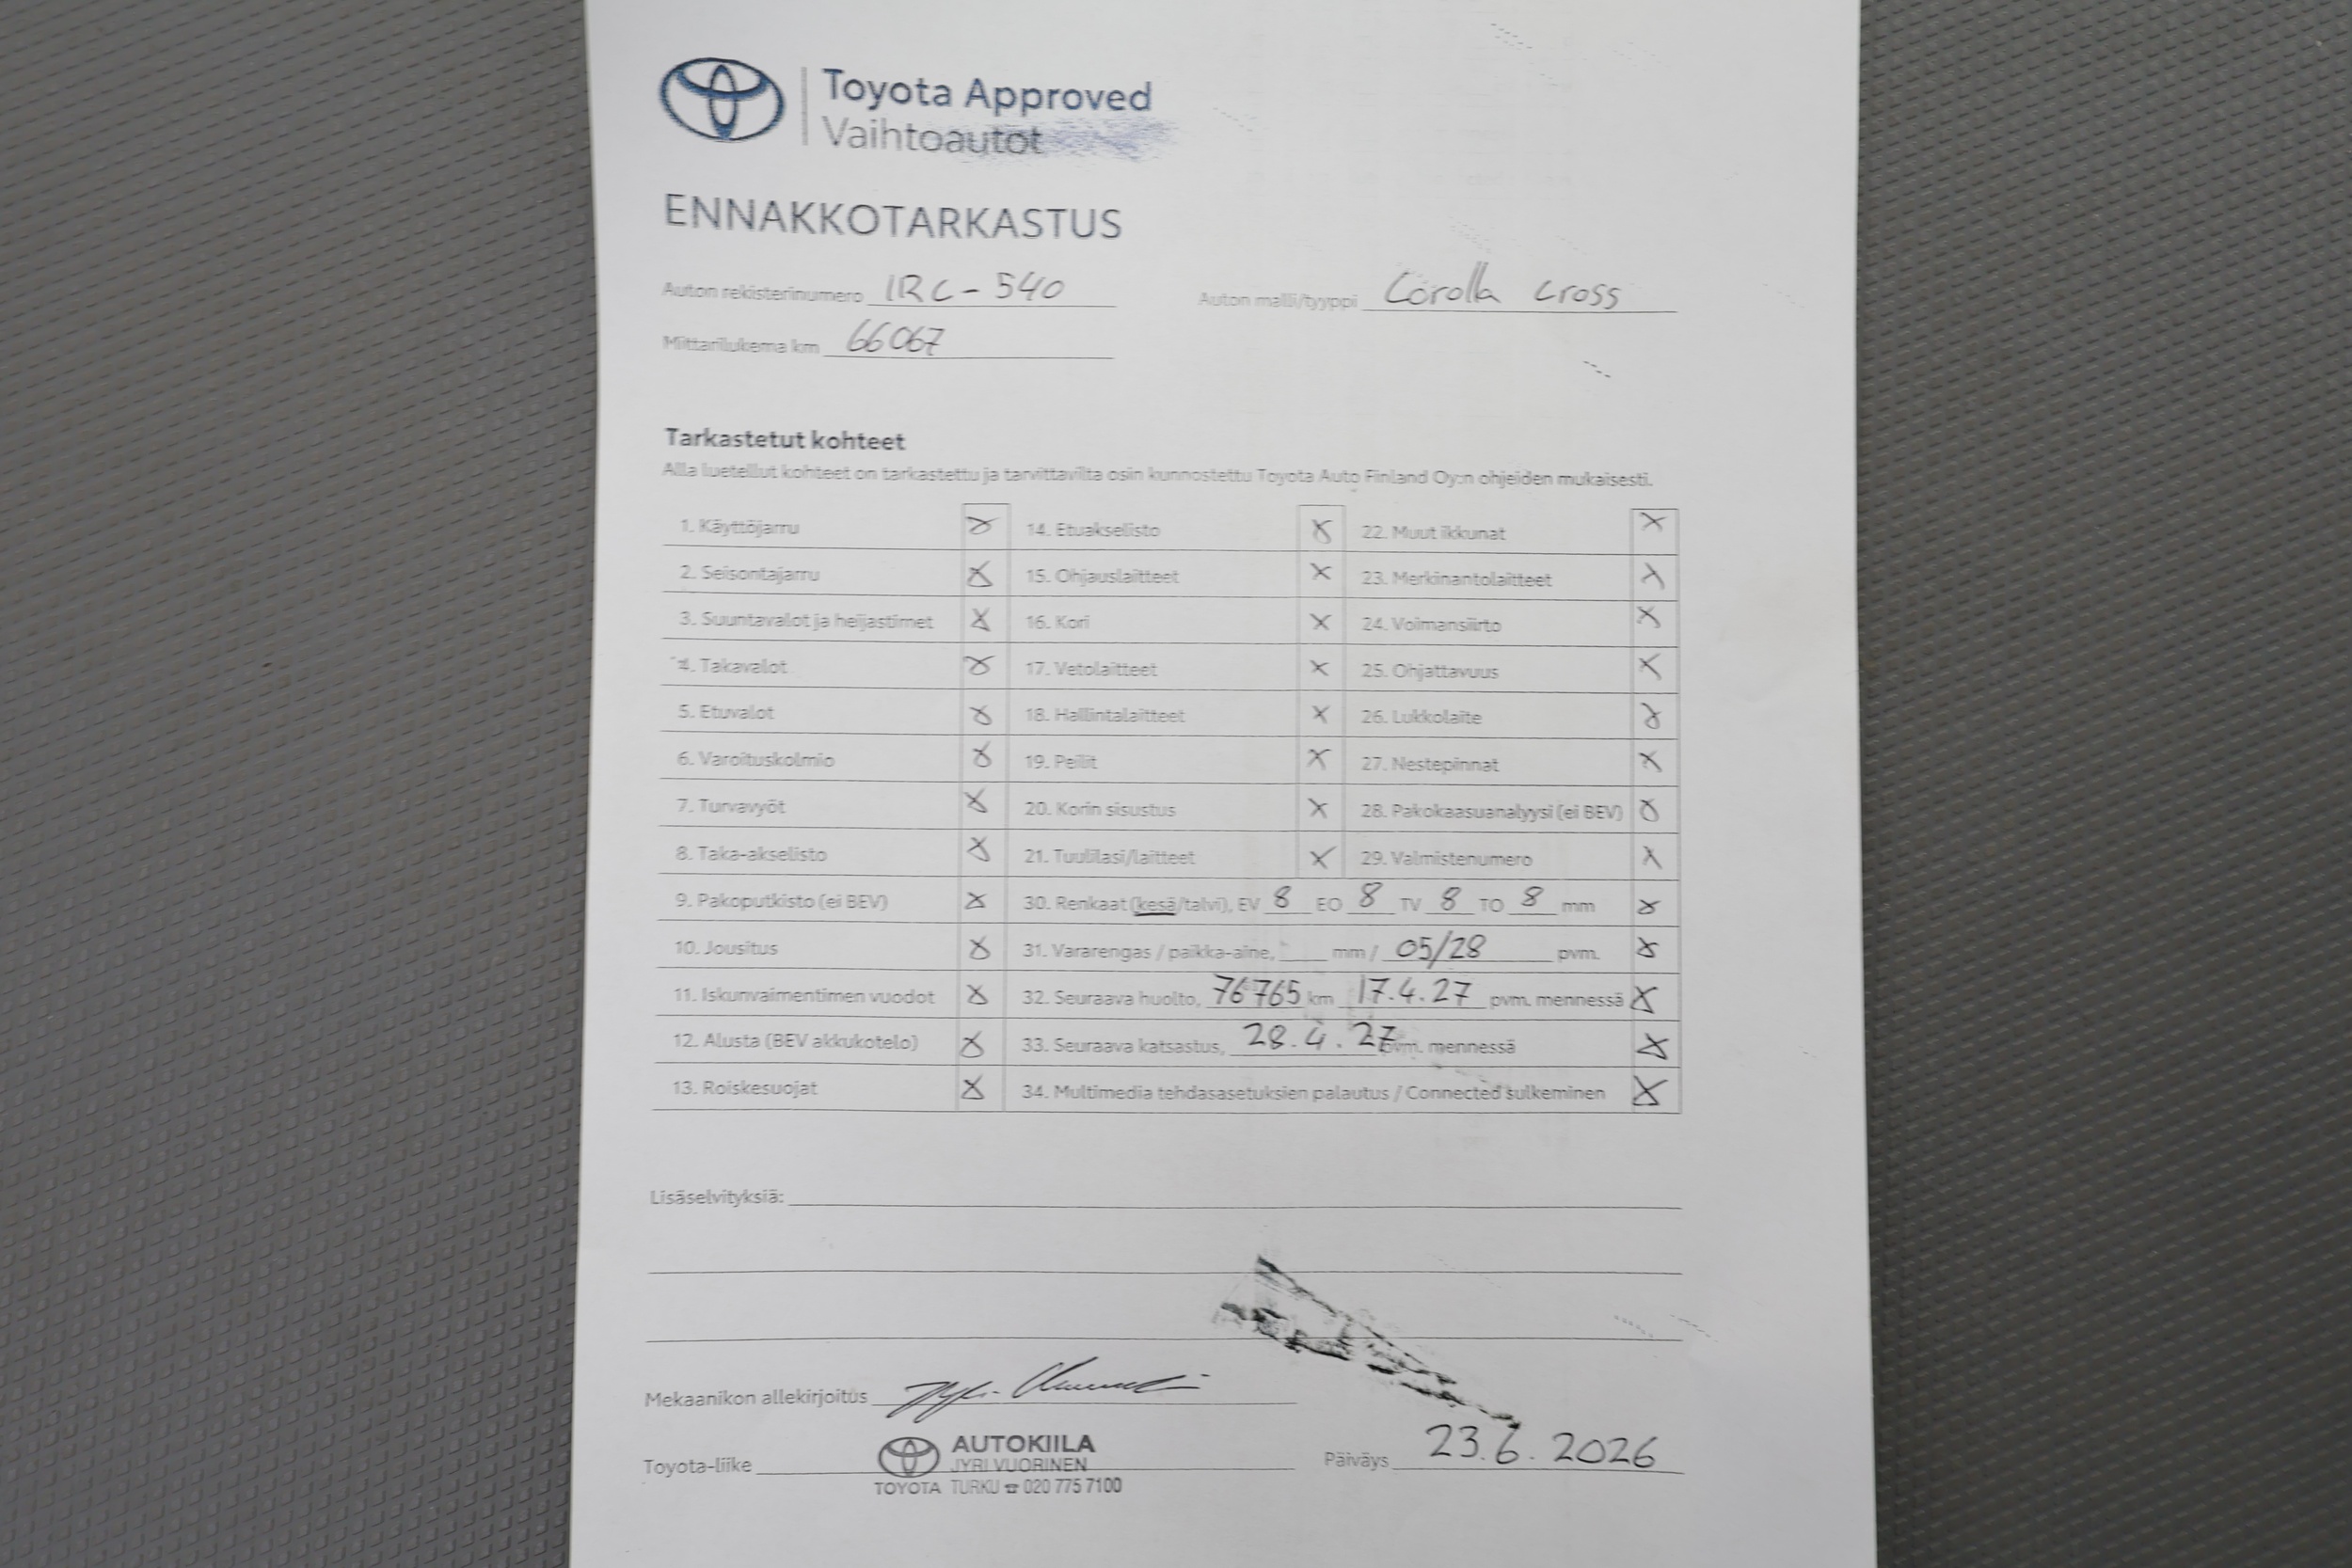 Toyota Approved
Vaihtoautot
ENNAKKOTARKASTUS
Auton rekisterinumero IRC-540 Auton malli/tyyppi Corolla Cross
Mittarilukema km 66067
Tarkastetut kohteet
Alla luetellut kohteet on tarkastettu ja tarvittavilta osin kunnostettu Toyota Auto Finland Oy:n ohjeiden mukaisesti.
1. Käyttöjarru X 14. Etuakselisto X 22. Muut ikkunat X
2. Seisontajarru X 15. Ohjauslaitteet X 23. Merkinantolaitteet X
3. Suuntavalot ja heijastimet X 16. Kori X 24. Voimansiirto X
4. Takavalot X 17. Vetolaitteet X 25. Ohjattavuus X
5. Etuvalot X 18. Hallintalaitteet X 26. Lukkolaite X
6. Varoituskolmio X 19. Peilit X 27. Nestepinnat X
7. Turvavyöt X 20. Korin sisustus X 28. Pakokaasuanalyysi (ei BEV) X
8. Taka-akselisto X 21. Tuulilasi/laitteet X 29. Valmistenumero X
9. Pakoputkisto (ei BEV) X 30. Renkaat (kesä/talvi), EV 8 EO 8 TV 8 TO 8 mm X
10. Jousitus X 31. Vararengas / paikka-aine, mm / 05/28 pvm. X
11. Iskunvaimentimen vuodot X 32. Seuraava huolto, 76765 km 17.4.27 pvm. mennessä X
12. Alusta (BEV akkukotelo) X 33. Seuraava katsastus, 28.4.27 pvm. mennessä X
13. Roiskesuojat X 34. Multimedia tehdasasetuksien palautus / Connected sulkeminen X
Lisäselvityksiä:
Mekaanikon allekirjoitus
Toyota-liike AUTOKIILA Päiväys 23.6.2026
JYRI VUORINEN
TOYOTA TURKU ☎ 020 775 7100